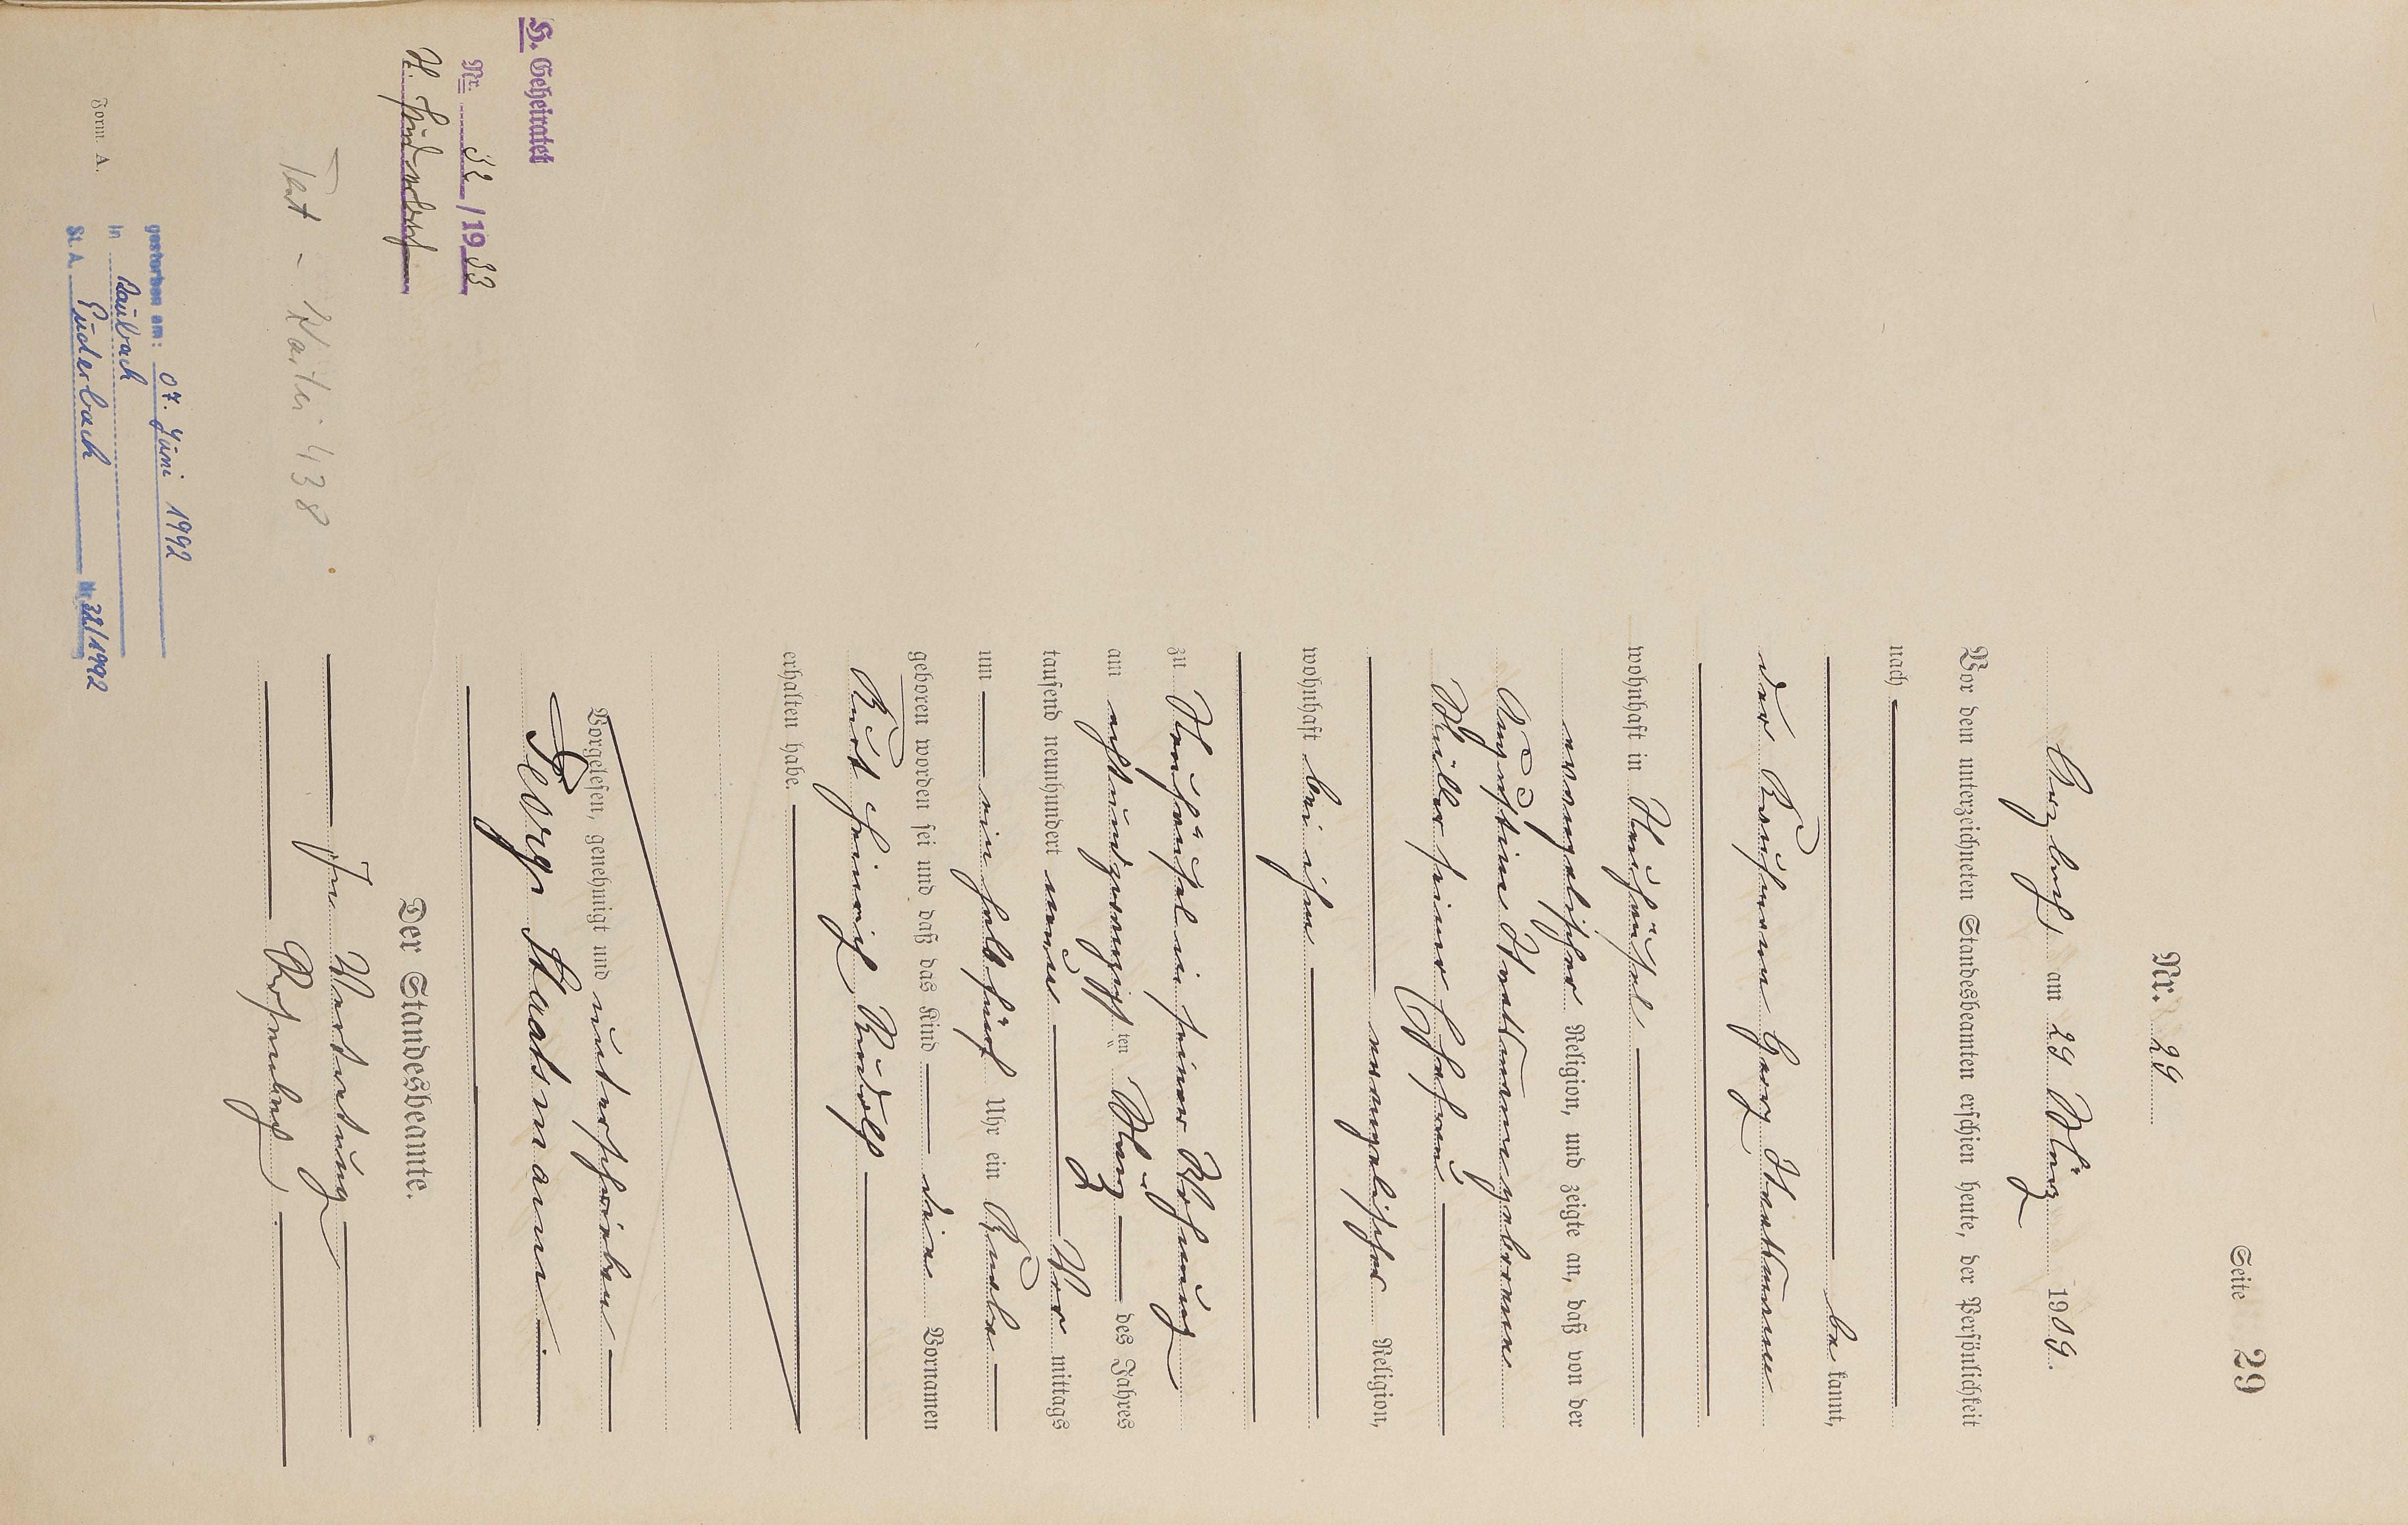 Seite 29
Nr. 29
am 29 März 1909.
Vor dem unterzeichneten Standesbeamten erschien heute, der Persönlichkeit
nach
be kannt,
der Georg Staatsmann
wohnhaft in Neuhäusel
evangelischer Religion, und zeigte an, daß von der
Augustine Staatsmann geborene
Müller seiner Ehefrau
evangelischer Religion,
wohnhaft bei ihm
zu Neuhäusel in seiner Wohnung
am achtundzwanzigsten März des Jahres
tausend neunhundert neun Vor mittags
um ein halb fünf Uhr ein Knabe
geboren worden sei und daß das Kind die Vornamen
Kurt Heinrich Rudolf
erhalten habe.
Vorgelesen, genehmigt und unterschrieben
Georg Staatsmann
Der Standesbeamte.
In Vertretung
H. Geheiratet
Nr. 32/1933
Test - Kartei 438
gestorben am: 07. Juni 1992
in Raubach
St. A. Puderbach Nr. 32/1992
Form. A.